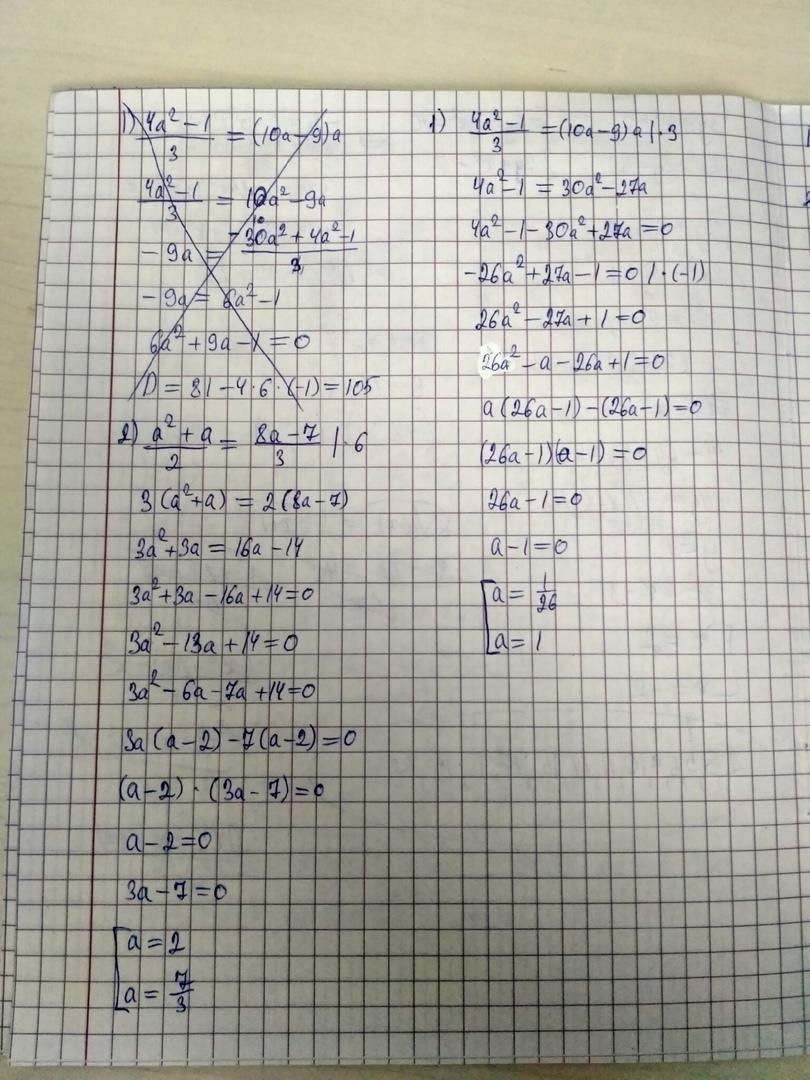 1) (4a² − 1)/3 = (10a − 9)a
(4a² − 1)/3 = 10a² − 9a
− 9a = (− 30a² + 4a² − 1)/3
− 9a = 6a² − 1
6a² + 9a − 1 = 0
D = 81 − 4 · 6 · (−1) = 105
2) (a² + a)/2 = (8a − 7)/3 | · 6
3(a² + a) = 2(8a − 7)
3a² + 3a = 16a − 14
3a² + 3a − 16a + 14 = 0
3a² − 13a + 14 = 0
3a² − 6a − 7a + 14 = 0
3a(a − 2) − 7(a − 2) = 0
(a − 2) · (3a − 7) = 0
a − 2 = 0
3a − 7 = 0
[a = 2
[a = 7/3
1) (4a² − 1)/3 = (10a − 9)a | · 3
4a² − 1 = 30a² − 27a
4a² − 1 − 30a² + 27a = 0
−26a² + 27a − 1 = 0 | · (−1)
26a² − 27a + 1 = 0
26a² − a − 26a + 1 = 0
a(26a − 1) − (26a − 1) = 0
(26a − 1)(a − 1) = 0
26a − 1 = 0
a − 1 = 0
[a = 1/26
[a = 1